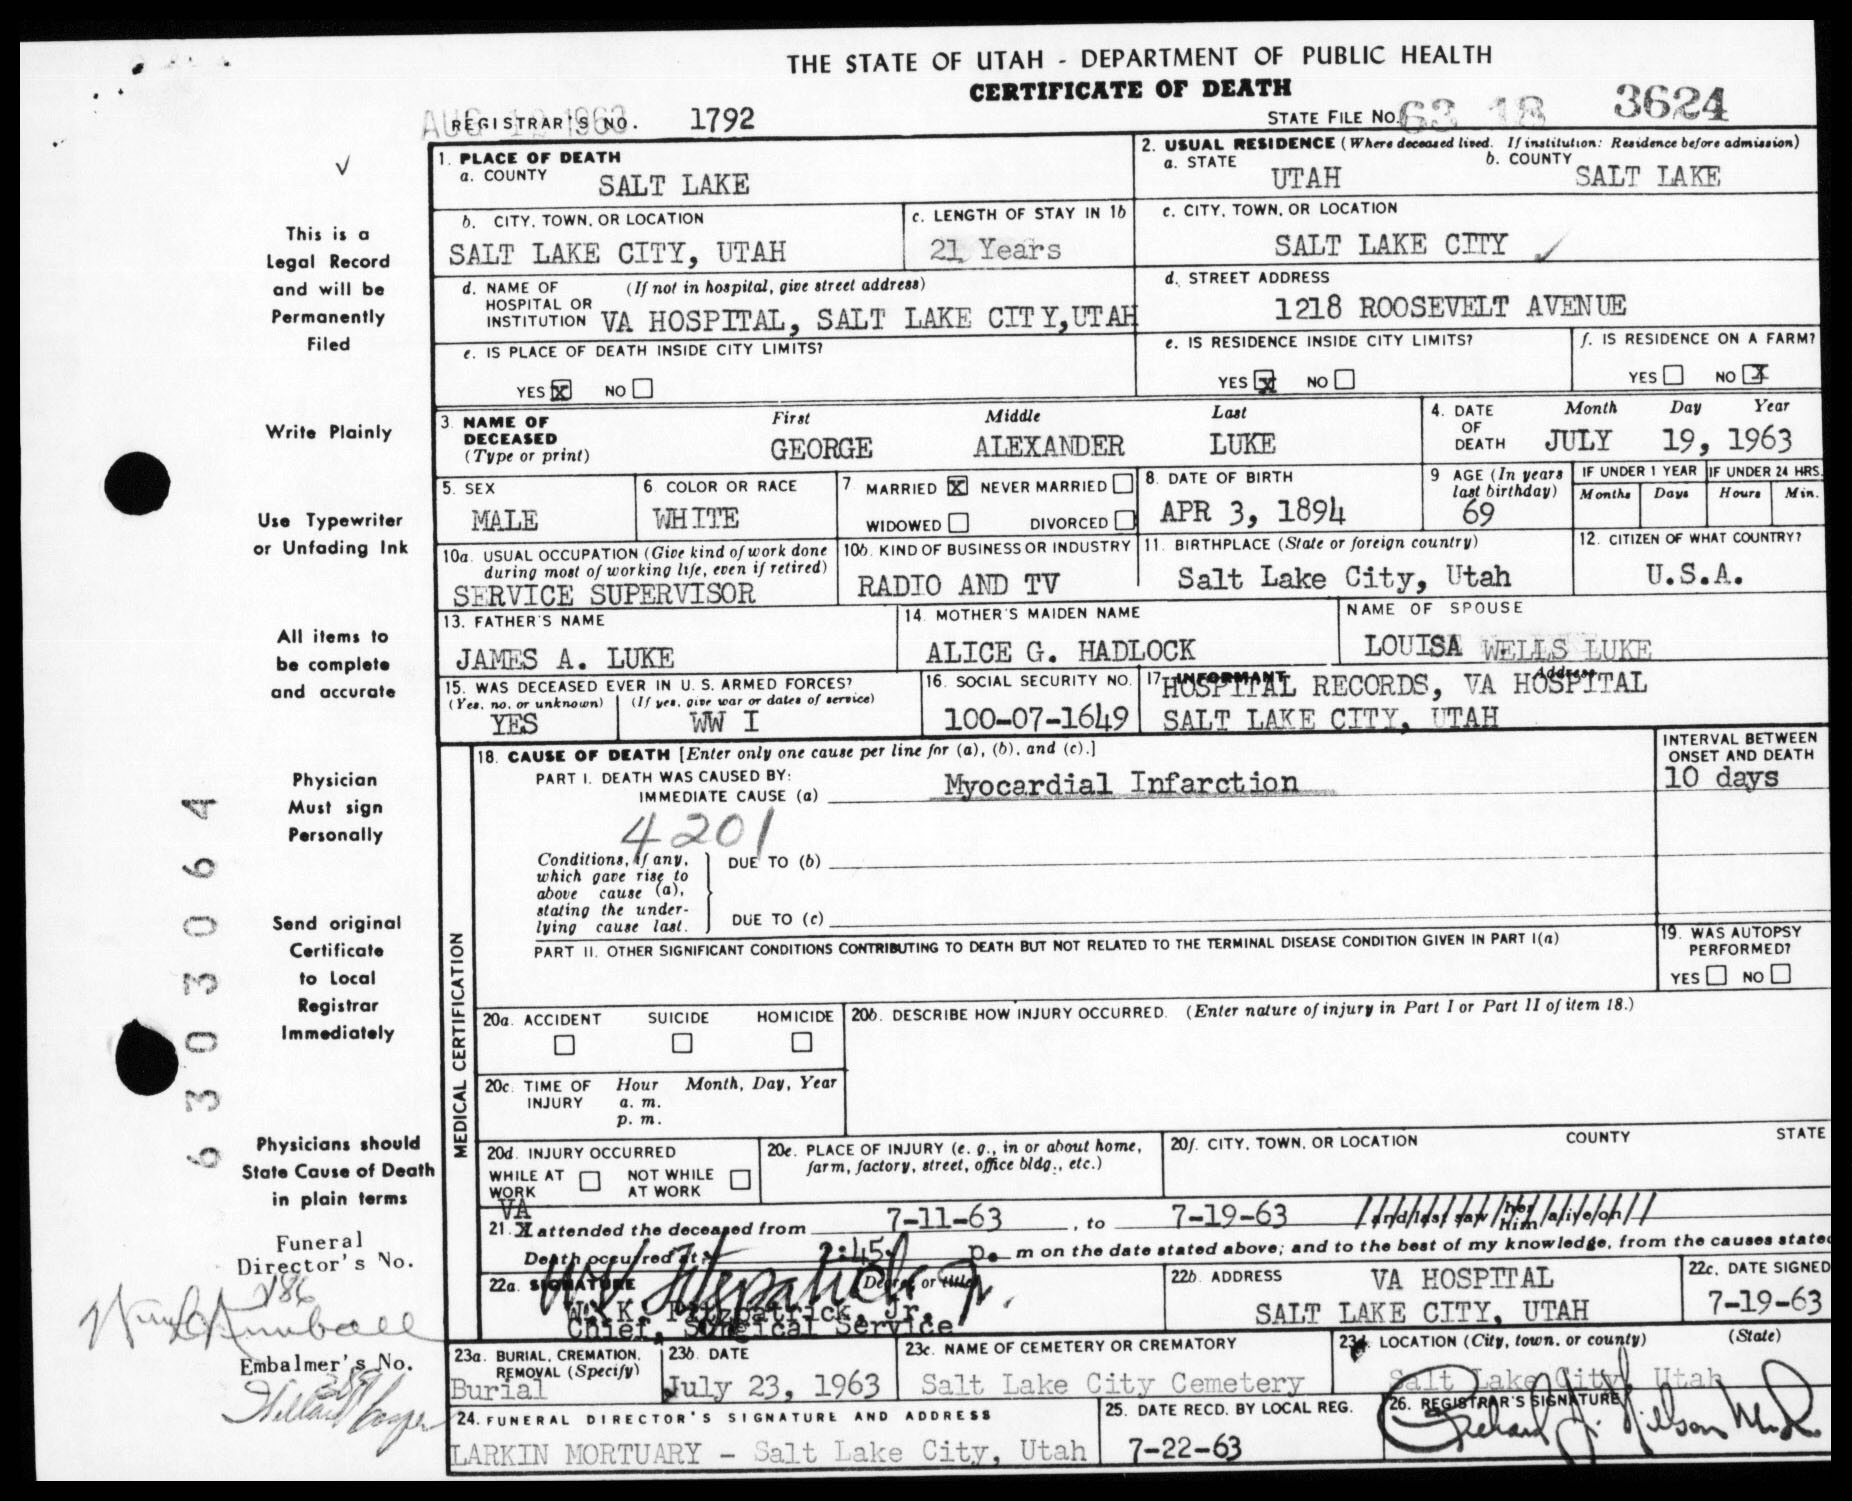 THE STATE OF UTAH - DEPARTMENT OF PUBLIC HEALTH
CERTIFICATE OF DEATH
AUG 12 1963
REGISTRAR'S NO. 1792
STATE FILE NO. 63 18 3624
1. PLACE OF DEATH
a. COUNTY SALT LAKE
2. USUAL RESIDENCE (Where deceased lived. If institution: Residence before admission)
a. STATE UTAH b. COUNTY SALT LAKE
b. CITY, TOWN, OR LOCATION
SALT LAKE CITY, UTAH
c. LENGTH OF STAY IN 1b
21 Years
c. CITY, TOWN, OR LOCATION
SALT LAKE CITY
d. NAME OF (If not in hospital, give street address)
HOSPITAL OR
INSTITUTION VA HOSPITAL, SALT LAKE CITY, UTAH
d. STREET ADDRESS
1218 ROOSEVELT AVENUE
e. IS PLACE OF DEATH INSIDE CITY LIMITS?
YES X NO
e. IS RESIDENCE INSIDE CITY LIMITS?
YES X NO
f. IS RESIDENCE ON A FARM?
YES NO X
3. NAME OF DECEASED (Type or print)
First Middle Last
GEORGE ALEXANDER LUKE
4. DATE OF DEATH
Month Day Year
JULY 19, 1963
5. SEX
MALE
6. COLOR OR RACE
WHITE
7 MARRIED X NEVER MARRIED
WIDOWED DIVORCED
8. DATE OF BIRTH
APR 3, 1894
9 AGE (In years last birthday)
69
IF UNDER 1 YEAR
Months Days
IF UNDER 24 HRS.
Hours Min.
10a. USUAL OCCUPATION (Give kind of work done
during most of working life, even if retired)
SERVICE SUPERVISOR
10b. KIND OF BUSINESS OR INDUSTRY
RADIO AND TV
11. BIRTHPLACE (State or foreign country)
Salt Lake City, Utah
12. CITIZEN OF WHAT COUNTRY?
U.S.A.
13. FATHER'S NAME
JAMES A. LUKE
14. MOTHER'S MAIDEN NAME
ALICE G. HADLOCK
NAME OF SPOUSE
LOUISA WELLS LUKE
15. WAS DECEASED EVER IN U. S. ARMED FORCES?
(Yes, no, or unknown) (If yes, give war or dates of service)
YES WW I
16. SOCIAL SECURITY NO.
100-07-1649
17. INFORMANT Address
HOSPITAL RECORDS, VA HOSPITAL
SALT LAKE CITY, UTAH
MEDICAL CERTIFICATION
18. CAUSE OF DEATH [Enter only one cause per line for (a), (b), and (c).]
PART I. DEATH WAS CAUSED BY:
IMMEDIATE CAUSE (a) Myocardial Infarction
INTERVAL BETWEEN
ONSET AND DEATH
10 days
4201
Conditions, if any,
which gave rise to
above cause (a),
stating the under-
lying cause last.
DUE TO (b)
DUE TO (c)
PART II. OTHER SIGNIFICANT CONDITIONS CONTRIBUTING TO DEATH BUT NOT RELATED TO THE TERMINAL DISEASE CONDITION GIVEN IN PART I(a)
19. WAS AUTOPSY
PERFORMED?
YES NO
20a. ACCIDENT SUICIDE HOMICIDE
20b. DESCRIBE HOW INJURY OCCURRED. (Enter nature of injury in Part I or Part II of item 18.)
20c. TIME OF INJURY
Hour Month, Day, Year
a. m.
p. m.
20d. INJURY OCCURRED
WHILE AT WORK NOT WHILE AT WORK
20e. PLACE OF INJURY (e. g., in or about home,
farm, factory, street, office bldg., etc.)
20f. CITY, TOWN, OR LOCATION COUNTY STATE
VA
21. X attended the deceased from 7-11-63, to 7-19-63 and last saw her him alive on
Death occurred at 2:45 p. m on the date stated above; and to the best of my knowledge, from the causes stated
22a. SIGNATURE (Degree or title)
W K Fitzpatrick Jr.
W. K. Fitzpatrick, Jr.
Chief, Surgical Service
22b. ADDRESS
VA HOSPITAL
SALT LAKE CITY, UTAH
22c. DATE SIGNED
7-19-63
23a. BURIAL, CREMATION,
REMOVAL (Specify)
Burial
23b. DATE
July 23, 1963
23c. NAME OF CEMETERY OR CREMATORY
Salt Lake City Cemetery
23d. LOCATION (City, town, or county) (State)
Salt Lake City, Utah
24. FUNERAL DIRECTOR'S SIGNATURE AND ADDRESS
LARKIN MORTUARY - Salt Lake City, Utah
25. DATE RECD. BY LOCAL REG.
7-22-63
26. REGISTRAR'S SIGNATURE
This is a
Legal Record
and will be
Permanently
Filed
Write Plainly
Use Typewriter
or Unfading Ink
All items to
be complete
and accurate
Physician
Must sign
Personally
Send original
Certificate
to Local
Registrar
Immediately
Physicians should
State Cause of Death
in plain terms
6303064
Funeral
Director's No.
186
Embalmer's No.